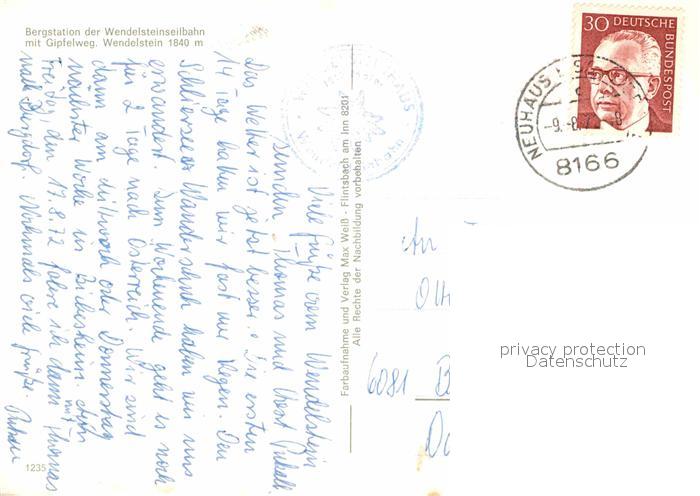 Bergstation der Wendelsteinseilbahn
mit Gipfelweg. Wendelstein 1840 m
30 DEUTSCHE BUNDESPOST
NEUHAUS
-9.-8.7
8166
Viele Grüße vom Wendelstein
senden Thomas und
Das Wetter ist jetzt besser. Die ersten
14 Tage hatten wir fast nur Regen. Den
Schlierseer Wanderschuh haben wir uns
erwandert. Zum Wochenende geht es noch
für 2 Tage nach Österreich. Wir sind
dann am Mittwoch oder Donnerstag
nächster Woche in Biebesheim.
Freitag den 17.8.72 fahre ich dann mit Thomas
nach Nochmals viele Grüße.
Farbaufnahme und Verlag Max Weiß - Flintsbach am Inn 8201
Alle Rechte der Nachbildung vorbehalten
An
6081 B
privacy protection
Datenschutz
1235